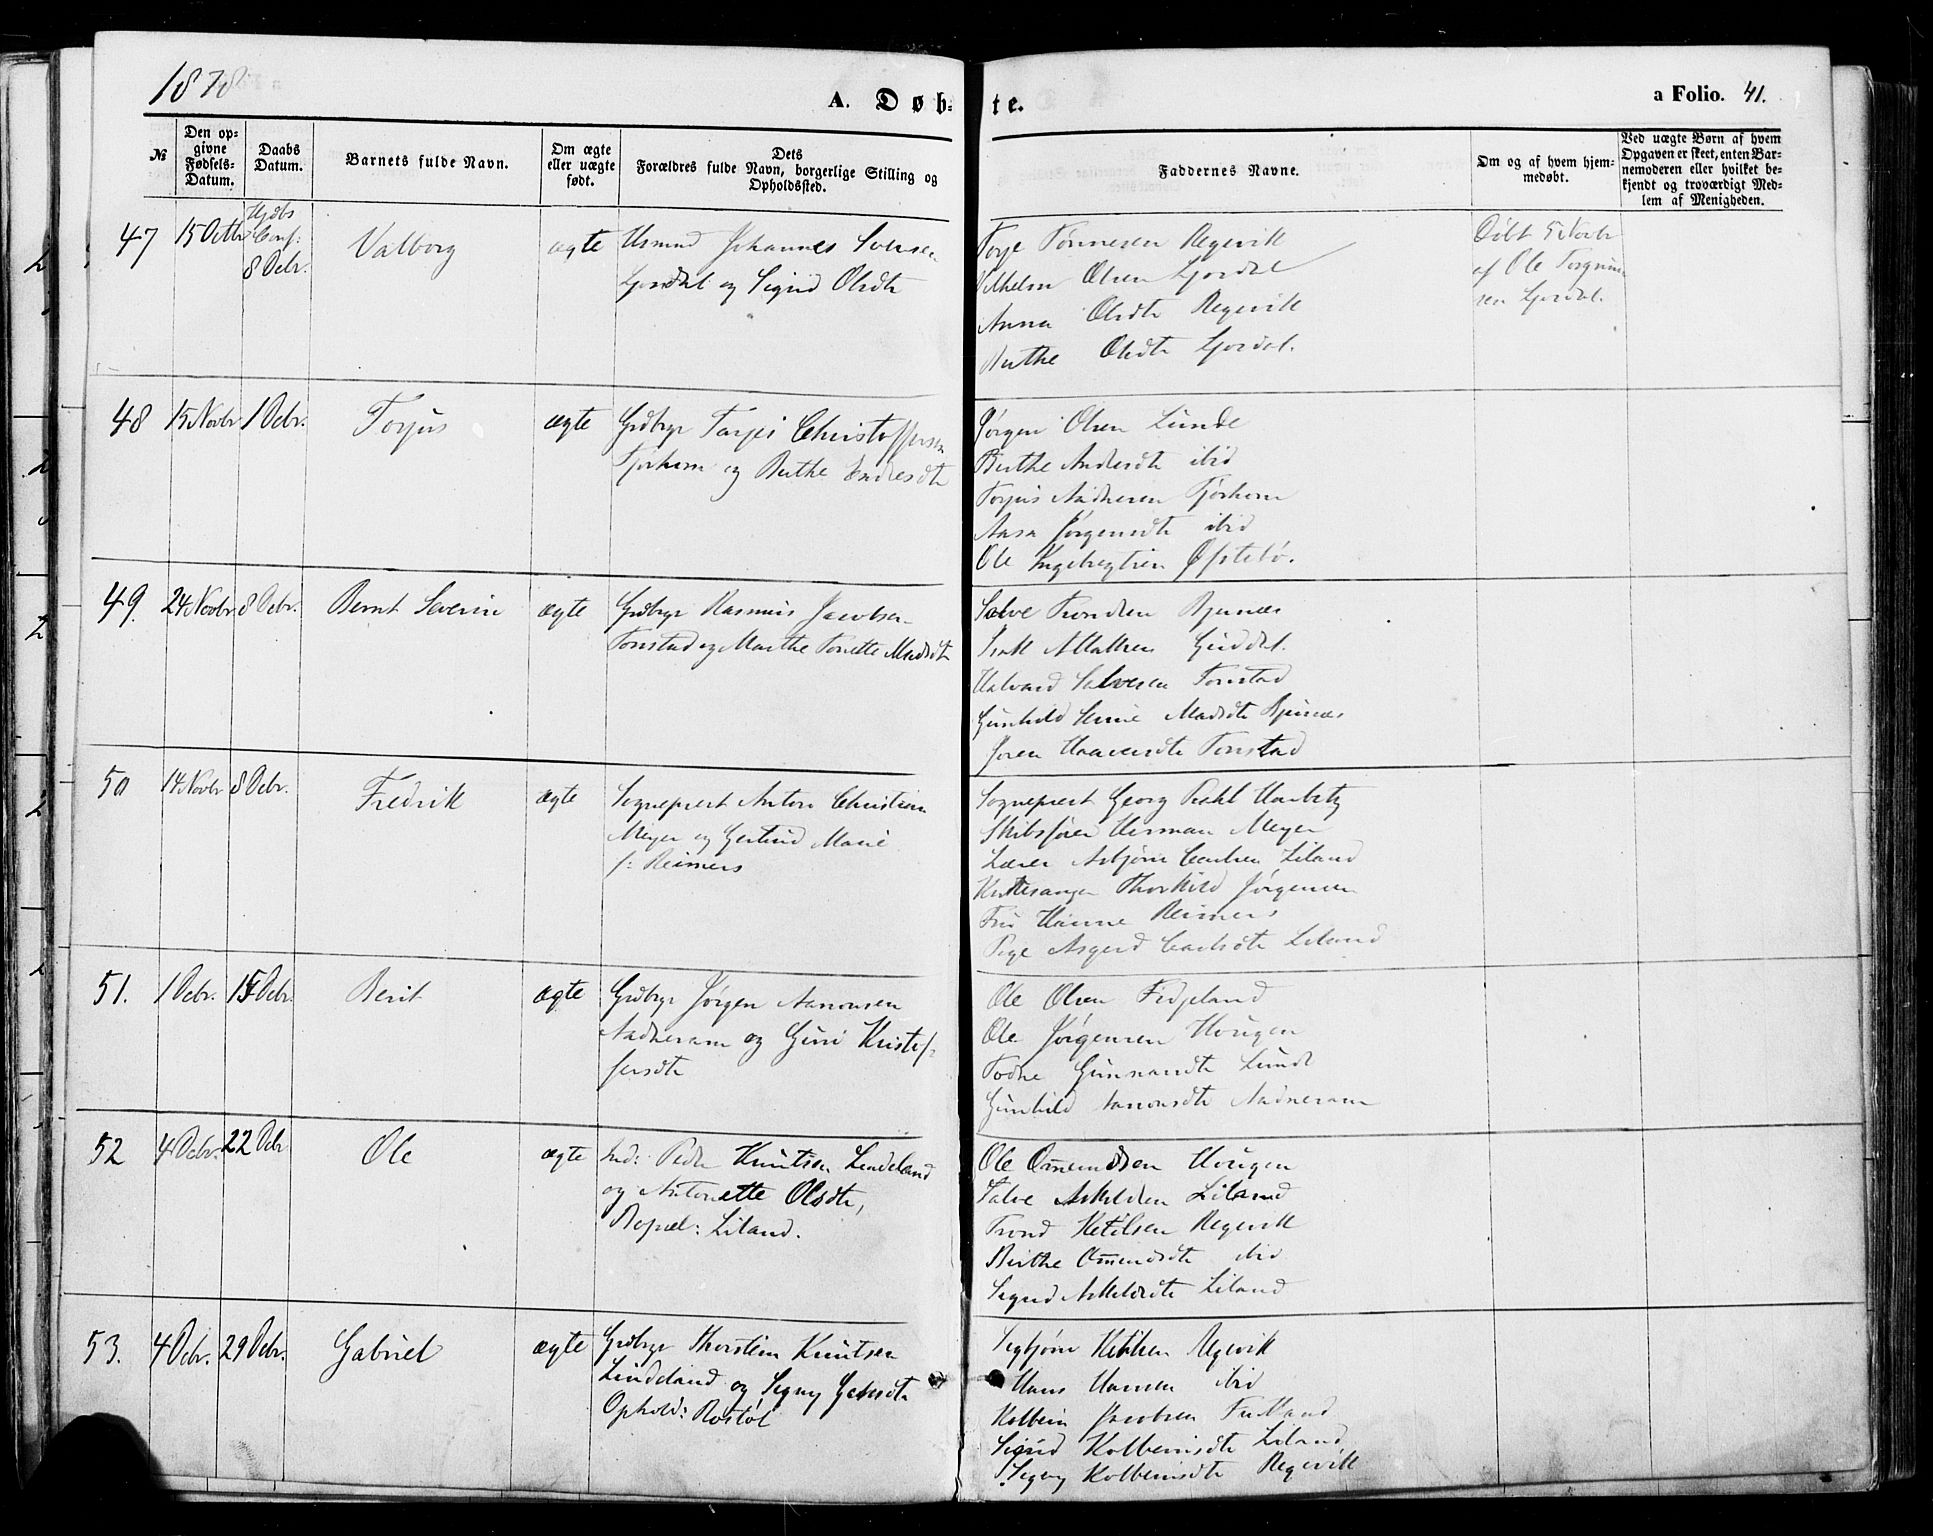 1878
A. Døb-
te.
a Folio. 41.
№
Den op-
givne
Fødsels-
Datum.
Daabs
Datum.
Barnets fulde Navn.
Om ægte
eller uægte
født.
Dets
Forældres fulde Navn, borgerlige Stilling og
Opholdssted.
Faddernes Navne.
Om og af hvem hjem-
medøbt.
Ved uægte Børn af hvem
Opgaven er skeet, enten Bar-
nemoderen eller hvilket be-
kjendt og troværdigt Med-
lem af Menigheden.
47
15 Octbr
Hjdbs
Conf:
8 Dcbr.
Valborg
ægte
Johannes
og Sigrid Olsdtr
Torje Tønnesen Regevik
Vilhelm Olsen
Anna Olsdtr Regevik
Birthe Olsdtr
Døbt 5 Novbr
af Ole
48
15 Novbr
1 Dcbr.
Torjus
ægte
Grdbrgr Tarjei Christoffersen
Tjørhom og Birthe Endresdtr
Jørgen Olsen Lunde
Birthe Andersdtr ibid
Torjus Tjørhom
Aasa Jørgensdtr ibid
Ole Ingebregtsen Øfstebø.
49.
24 Novbr.
8 Dcbr.
Bernt Severin
ægte
Grdbrgr Rasmus Jacobsen
Tonstad og Marthe Tonette Madsdtr
Salve Trondsen Bjunæs
Isak
Halvard Salvesen Tonstad
Gunhild Madsdtr Bjunæs
Joren Tonstad
50
14 Novbr
8 Dcbr.
Fredrik
ægte
Sognepræst Anton Christian
Meyer og Gertrud Marie
f: Reimers
Sognepræst Georg
Skibsfører Herman Meyer
Lærer Asbjørn Carlsen Liland
Kirkesanger Thorkild Jørgensen
Fru Hanne Reimers
Pige Asgerd Carlsdtr Liland
51.
1 Dcbr.
15 Dcbr.
Berit
ægte
Grdbrgr Jørgen Aanonsen
Aadneram og Guri Kristof-
fersdtr
Ole Olsen Fidjeland
Ole Jørgensen Hougen
Todne Gunnarsdtr Lunde
Gunhild Aanonsdtr Aadneram
52
4 Dcbr.
22 Dcbr
Ole
ægte
Ind: Peder Knutsen Lindeland
og Antonette Olsdtr,
Bopæl: Liland.
Ole Omundsen Hougen
Salve Askildsen Liland
Trond Ketilsen Regevik
Birthe Omundsdtr ibid
Sigrid Askildsdtr Liland
53.
4 Dcbr.
29 Dcbr.
Gabriel
ægte
Grdbrgr Thorstein Knutsen
Lindeland og Signy
Ophold: Rostøl
Sigbjørn Ketilsen Regevik
Hans Hansen ibid
Kolbein Jacobsen
Sigrid Kolbeinsdtr Liland
Signy Kolbeinsdtr Regevik